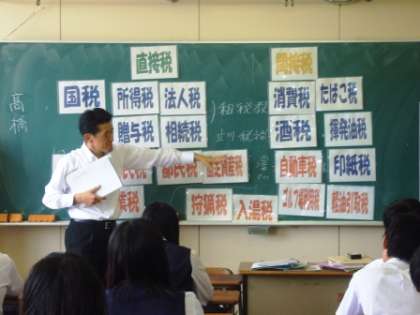 直接税
間接税
国税
所得税
法人税
消費税
たばこ税
贈与税
相続税
酒税
揮発油税
都民税
固定資産税
自動車税
印紙税
狩猟税
入湯税
ゴルフ場利用税
軽油引取税
高橋